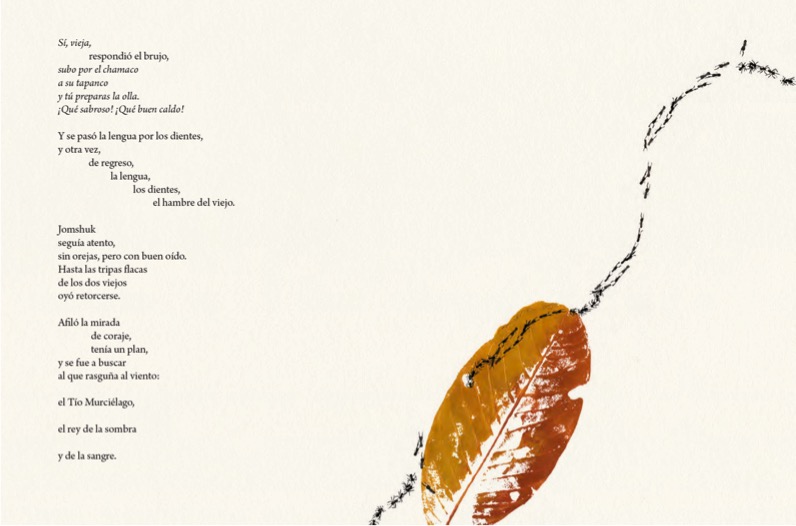 Sí, vieja,
respondió el brujo,
subo por el chamaco
a su tapanco
y tú preparas la olla.
¡Qué sabroso! ¡Qué buen caldo!
Y se pasó la lengua por los dientes,
y otra vez,
de regreso,
la lengua,
los dientes,
el hambre del viejo.
Jomshuk
seguía atento,
sin orejas, pero con buen oído.
Hasta las tripas flacas
de los dos viejos
oyó retorcerse.
Afiló la mirada
de coraje,
tenía un plan,
y se fue a buscar
al que rasguña al viento:
el Tío Murciélago,
el rey de la sombra
y de la sangre.